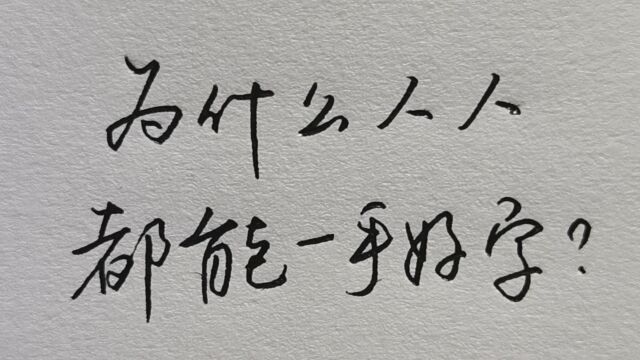 为什么人人
都能一手好字?